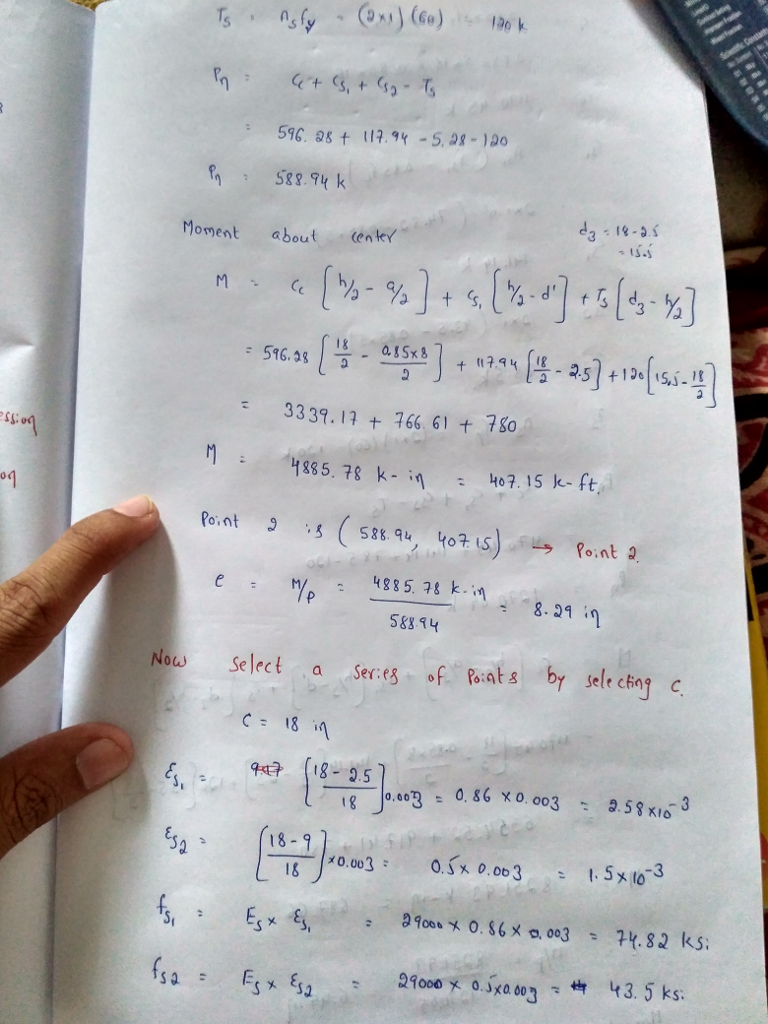 Ts = nsfy = (2x1) (60) = 120 k
Pn = Cc + Cs1 + Cs2 - Ts
= 596.28 + 117.94 - 5.28 - 120
Pn = 588.94 k
Moment about center
d3 = 18-2.5
= 15.5
M = Cc [h/2 - a/2] + Cs1 [h/2 - d'] + Ts [d3 - h/2]
= 596.28 [18/2 - 0.85x8/2] + 117.94 [18/2 - 2.5] + 120 [15.5 - 18/2]
= 3339.17 + 766.61 + 780
M = 4885.78 k-in = 407.15 k-ft.
Point 2 is (588.94, 407.15) → Point 2.
e = M/P = 4885.78 k-in / 588.94 = 8.29 in
Now select a series of Points by selecting C.
C = 18 in
Es1 = [18-2.5 / 18] 0.003 = 0.86 x 0.003 = 2.58x10-3
Es2 = [18-9 / 18] x0.003 = 0.5x 0.003 = 1.5x10-3
fs1 = Es x Es1 = 29000 x 0.86 x 0.003 = 74.82 ksi
fs2 = Es x Es2 = 29000 x 0.5x0.003 = 43.5 ksi
ession
on
Scientific Constants